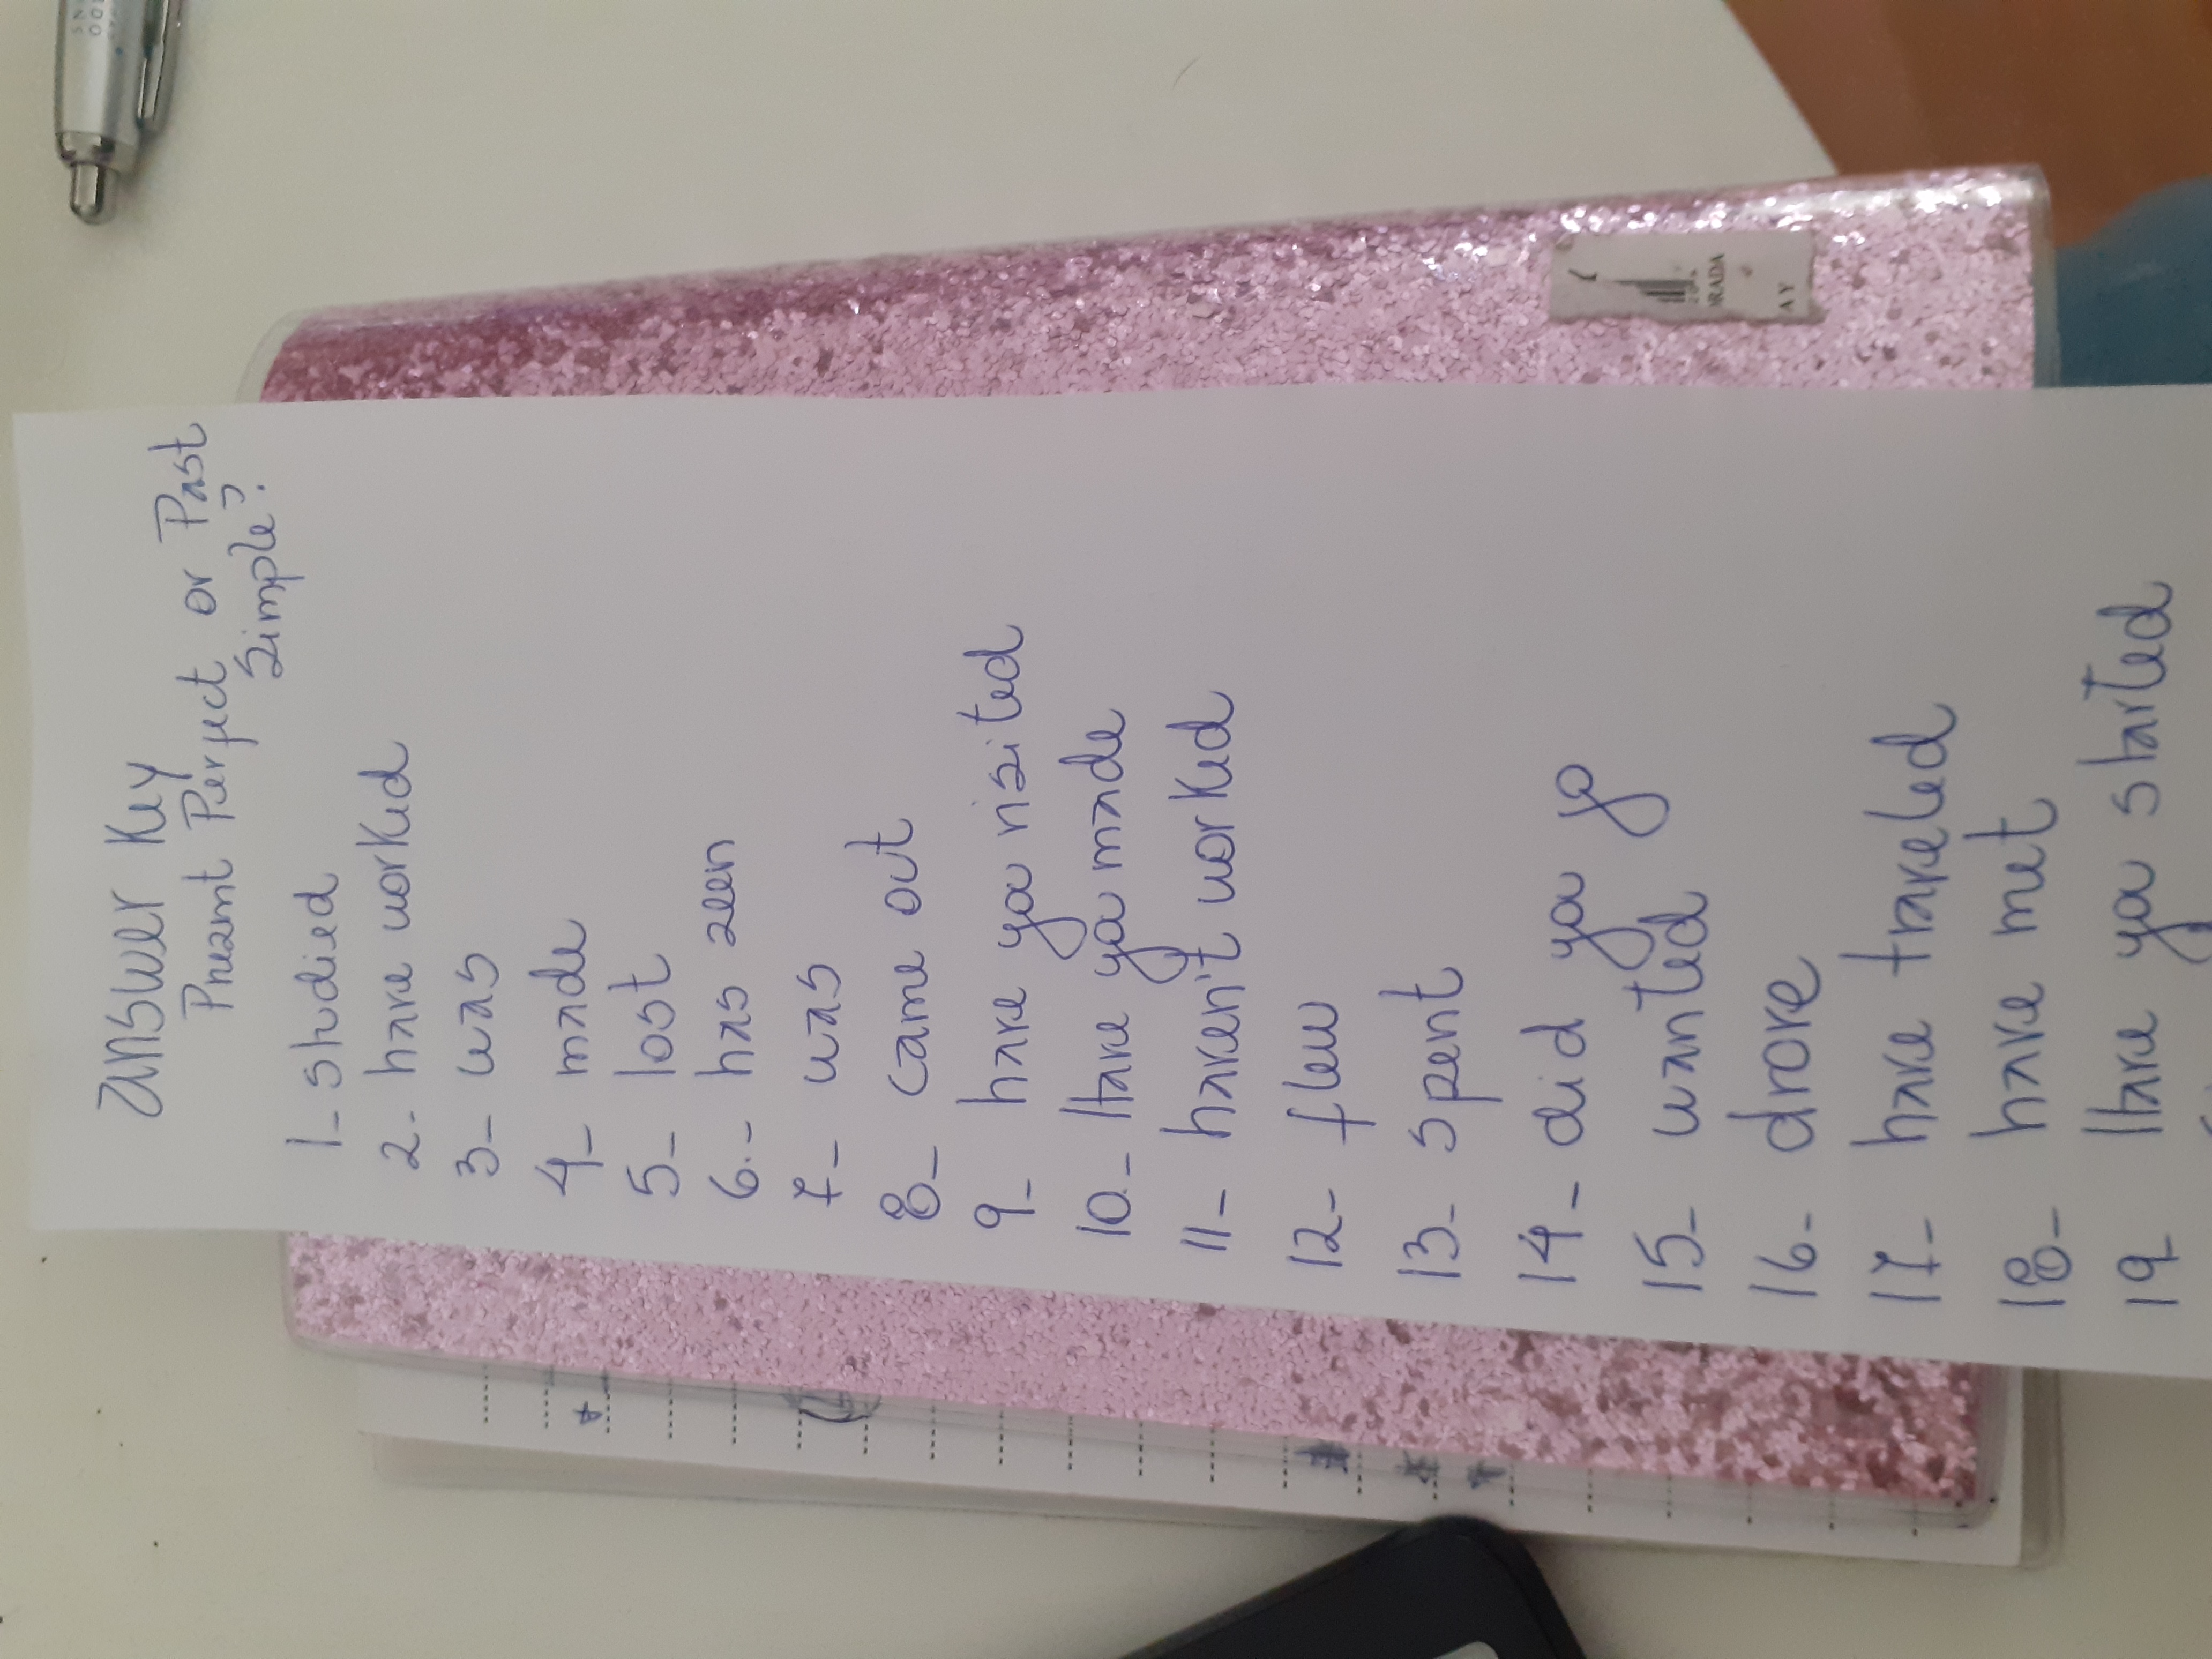 Answer Key
Present Perfect or Past
Simple?
1- studied
2- have worked
3- was
4- made
5- lost
6.- has seen
7- was
8- came out
9- have you visited
10- Have you made
11- haven't worked
12- flew
13- spent
14- did you go
15- wanted
16- drove
17- have traveled
18- have met
19- Have you started
ORADA
AY